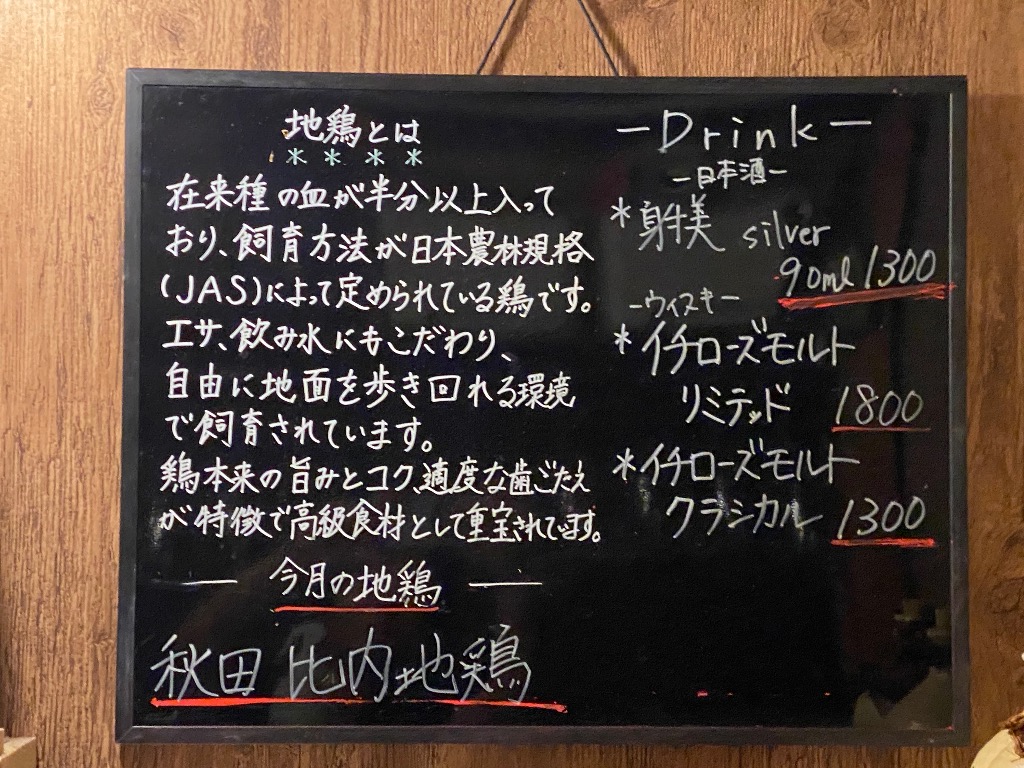 地鶏とは
＊＊＊＊
在来種の血が半分以上入って
おり、飼育方法が日本農林規格
(JAS)によって定められている鶏です。
エサ、飲み水にもこだわり、
自由に地面を歩き回れる環境
で飼育されています。
鶏本来の旨みとコク、適度な歯ごたえ
が特徴で高級食材として重宝されています。
― 今月の地鶏 ―
秋田 比内地鶏
―Drink―
―日本酒―
＊射美 silver
90ml 1300
―ウィスキー
＊イチローズモルト
リミテッド 1800
＊イチローズモルト
クラシカル 1300